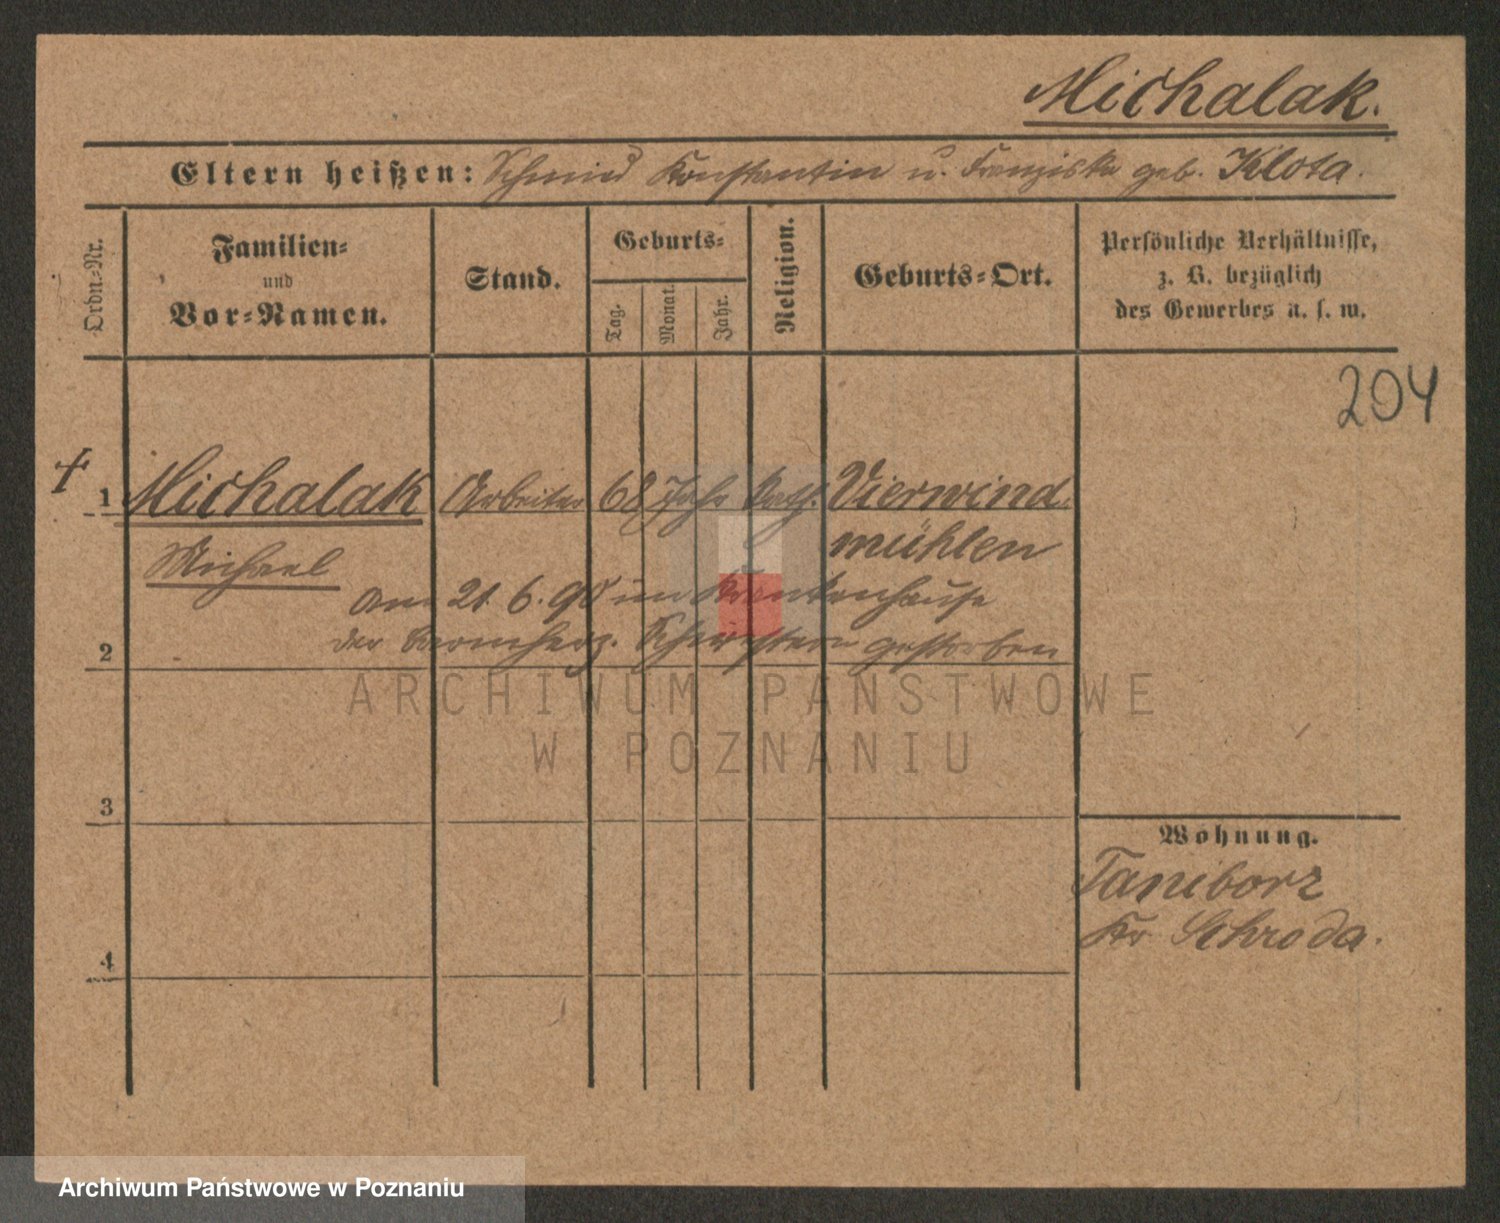 Michalak.
Eltern heißen: Schmied Konstantin u. Franziska geb. Klota.
Ordn.-Nr.
Familien-
und
Vor-Namen.
Stand.
Geburts-
Tag.
Monat.
Jahr.
Religion.
Geburts-Ort.
Persönliche Verhältnisse,
z. B. bezüglich
des Gewerbes u. s. w.
204
1 Michalak Arbeiter 68 Jahr kath. Vierwind
mühlen
Michael
Am 21.6.90 im Krankenhause
der barmherz. Schwestern gestorben
2
ARCHIWUM PAŃSTWOWE
W POZNANIU
3
Wohnung.
Taniborz
Kr Schroda.
4
Archiwum Państwowe w Poznaniu